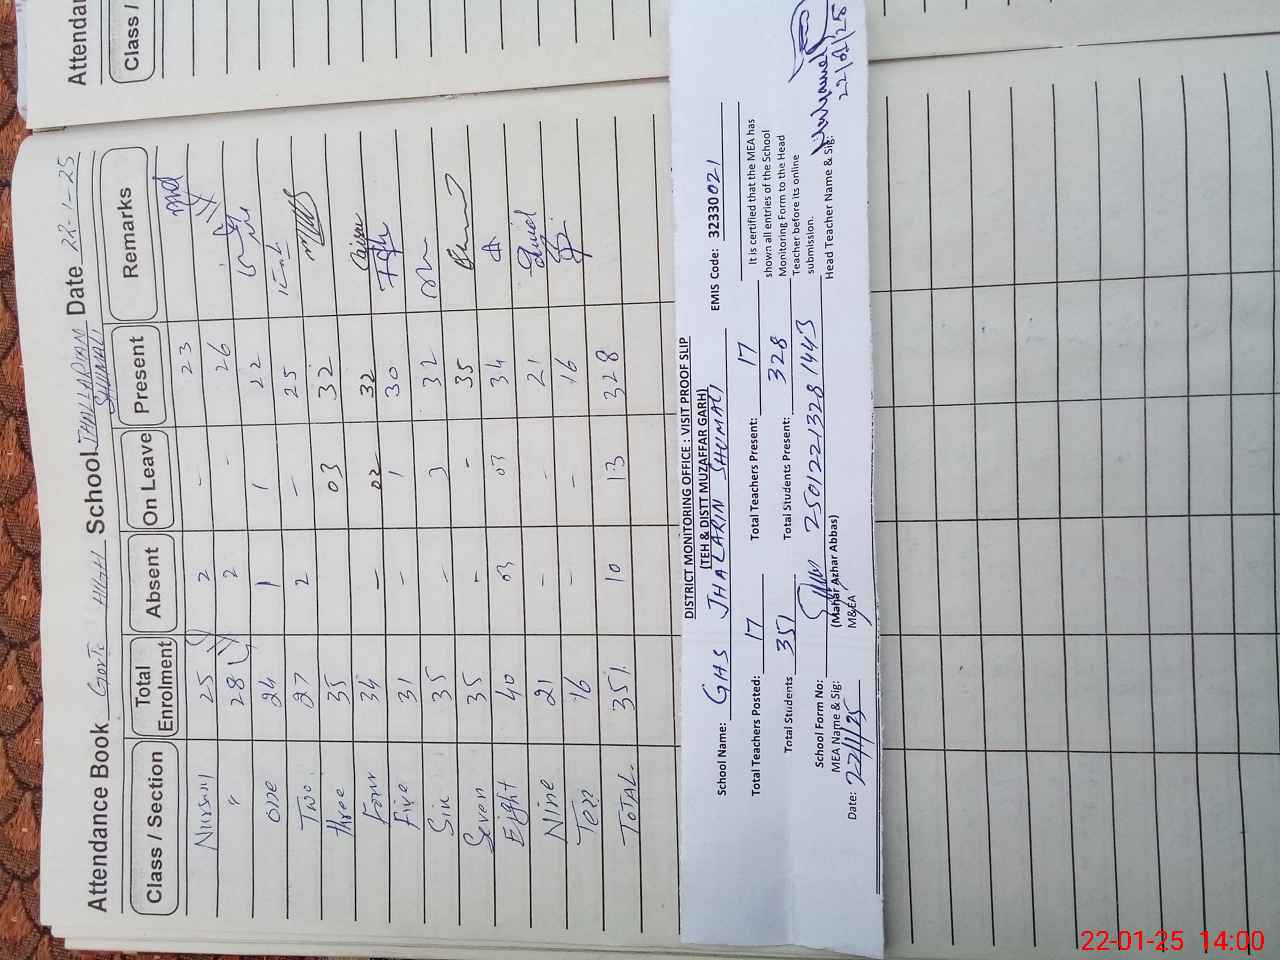 Attendance Book Govt: HIGH School JHALLARIAN SHUMALI Date 22-1-25
Class / Section Total Enrolment Absent On Leave Present Remarks
Nursury 25 2 - 23
" 28 2 - 26
one 24 1 1 22
Two 27 2 - 25
three 35 03 32
Four 34 - 02 32
Five 31 - 1 30
Six 35 - 3 32
Seven 35 - - 35
Eight 40 03 03 34
Nine 21 - - 21
Ten 16 - - 16
TOTAL. 351. 10 13 328
DISTRICT MONITORING OFFICE : VISIT PROOF SLIP
(TEH & DISTT MUZAFFAR GARH)
School Name: GHS JHALARIN SHUMALI EMIS Code: 32330021
Total Teachers Posted: 17 Total Teachers Present: 17
Total Students 351 Total Students Present: 328
It is certified that the MEA has
shown all entries of the School
Monitoring Form to the Head
Teacher before its online
submission.
School Form No: 2501221328 1443
MEA Name & Sig:
(Mahar Azhar Abbas)
M&EA
Head Teacher Name & Sig:
22/01/25
Date: 22/1/25
Attendan
Class /
22-01-25 14:00